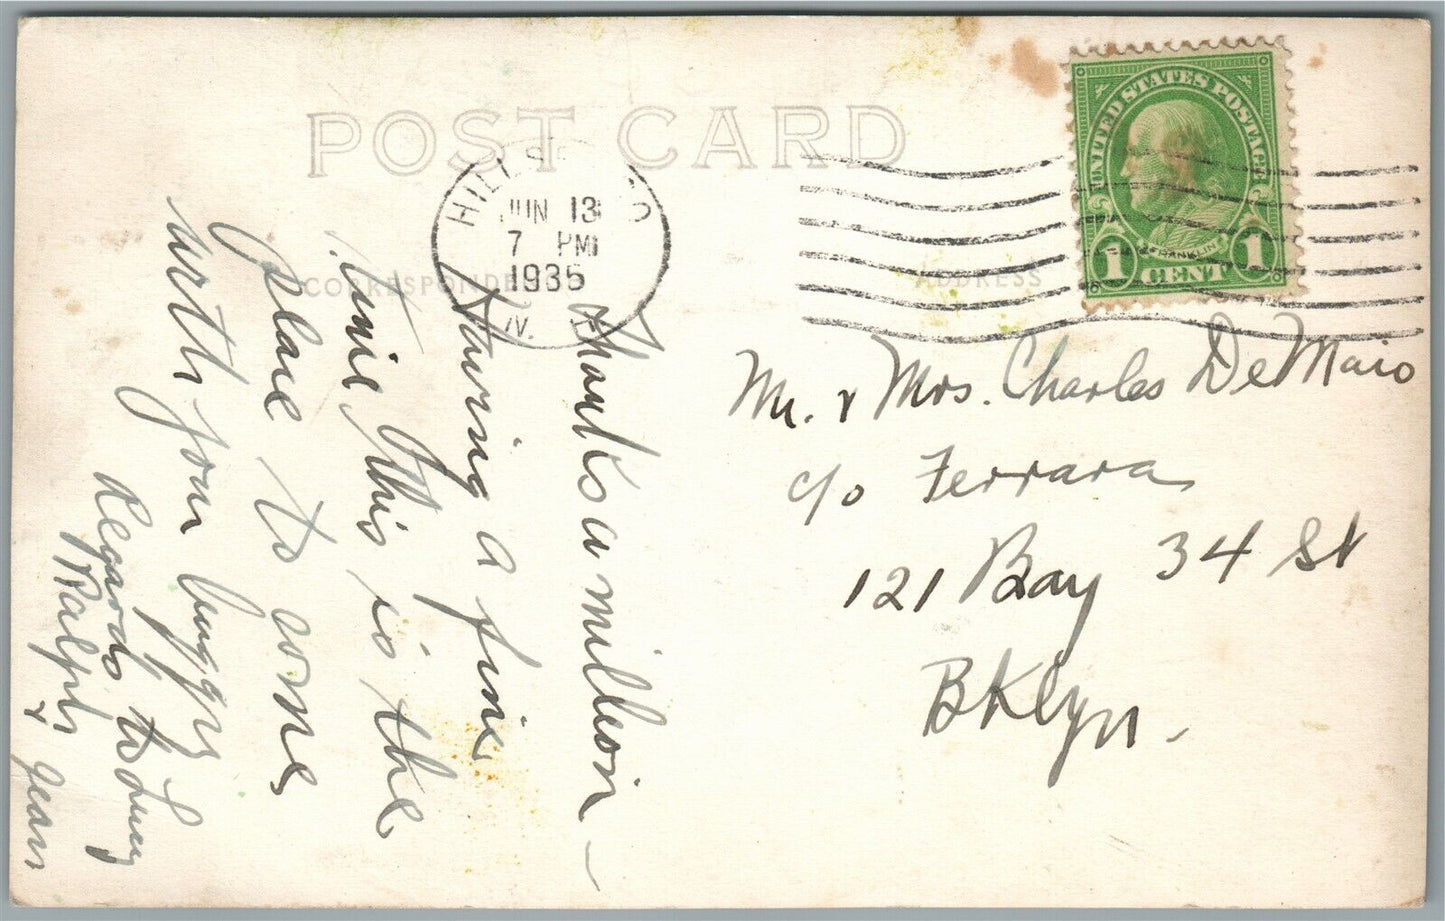 POST CARD
CORRESPONDE
ADDRESS
JUN 13
7 PM
1935
N.
UNITED STATES POSTAGE
FRANKLIN
1 CENT 1
Mr. & Mrs. Charles DeMaio
c/o Ferrara
121 Bay 34 St
Bklyn.
Thanks a million —
Having a fine
time, this is the
place to come
with your buggy
Regards to Lucy
Ralph & Jean